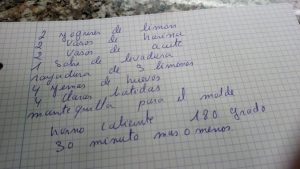 2 yogures de limon
2 vasos de harina
2 vasos de aceite
1 sobre de levadura
rayadura de 3 limones
4 yemas de huevos
4 claras batidas
mantequilla para el molde
horno caliente 180 grado
30 minuto mas o menos